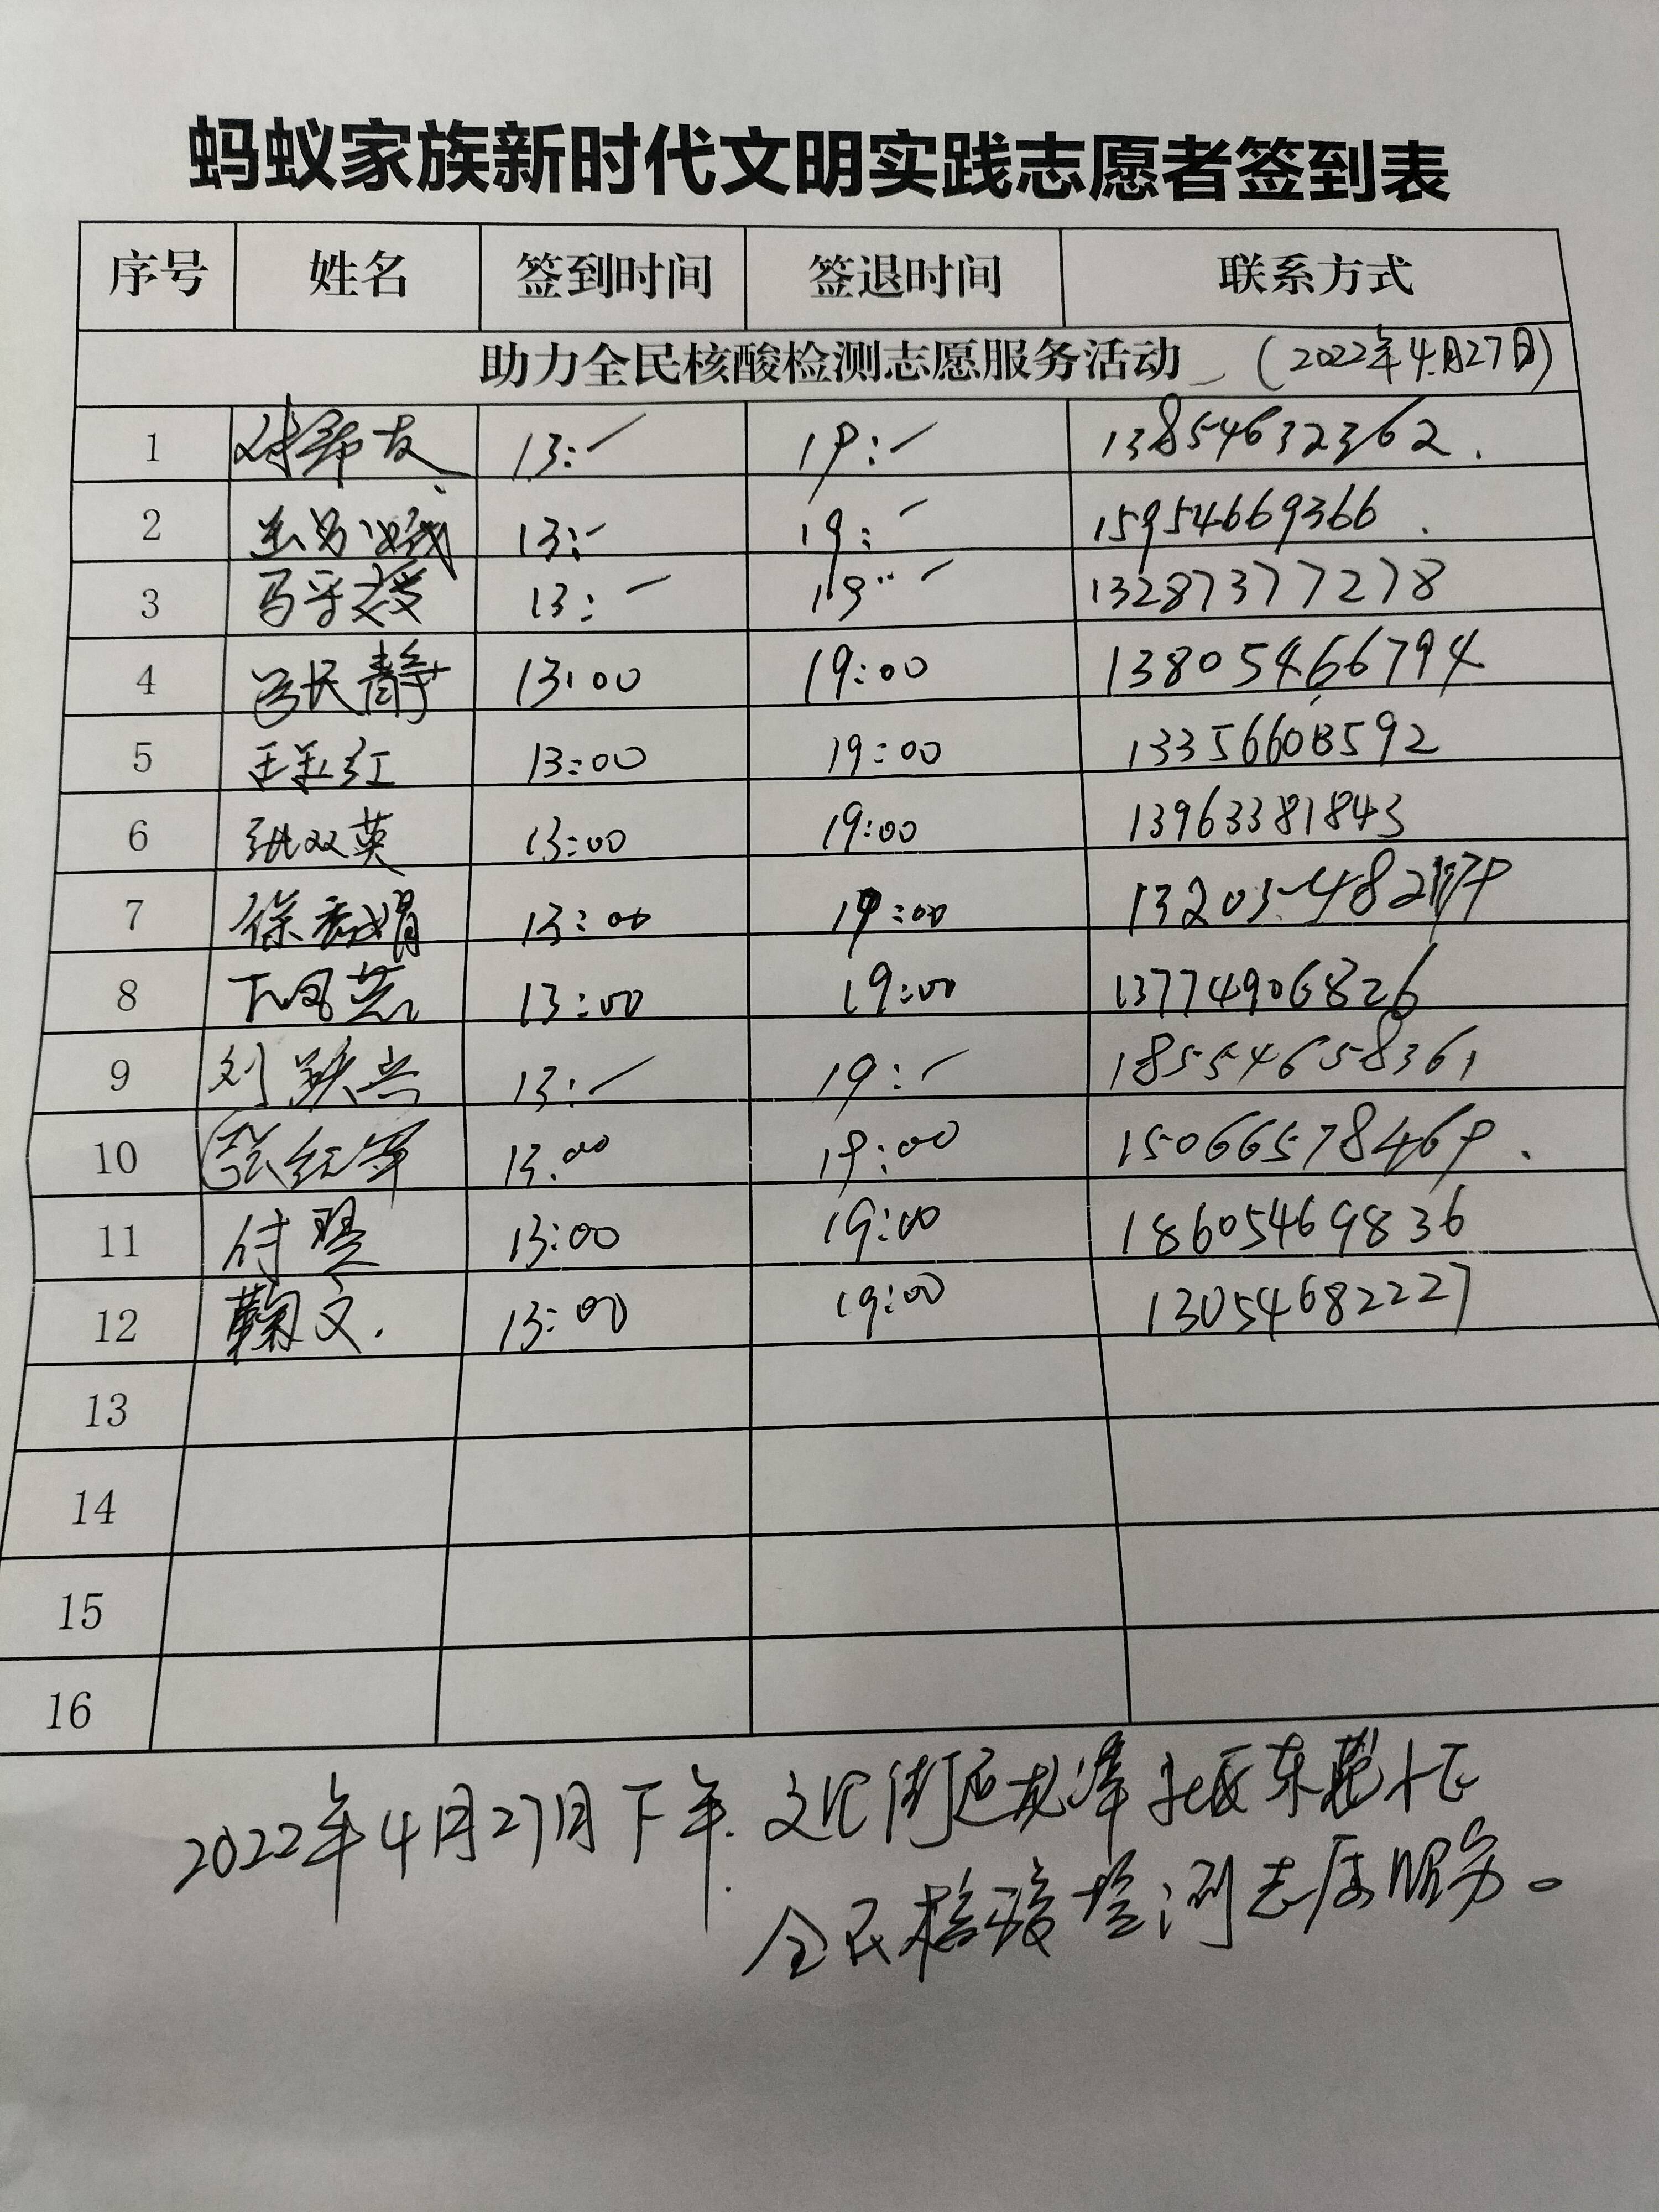 蚂蚁家族新时代文明实践志愿者签到表
序号 姓名 签到时间 签退时间 联系方式
助力全民核酸检测志愿服务活动 (2022年4月27日)
1 13:— 19:— 13854632362.
2 13:— 19:— 15954669366.
3 13:— 19:— 13287377278
4 吕民静 13:00 19:00 13805466794
5 王玉红 13:00 19:00
6 张双英 13:00 19:00 13963381843
7 徐 娟 13:00 19:00
8 13:00 19:00 13774906826
9 刘跃兵 13:— 19:— 18554658361
10 张红军 13:00 19:00 15066578469.
11 付翠 13:00 19:00 18605469836
12 鞠文. 13:00 19:00 13054682227
13
14
15
16
2022年4月27日下午.文化街道龙泽社区东
全民核酸检测志愿服务。